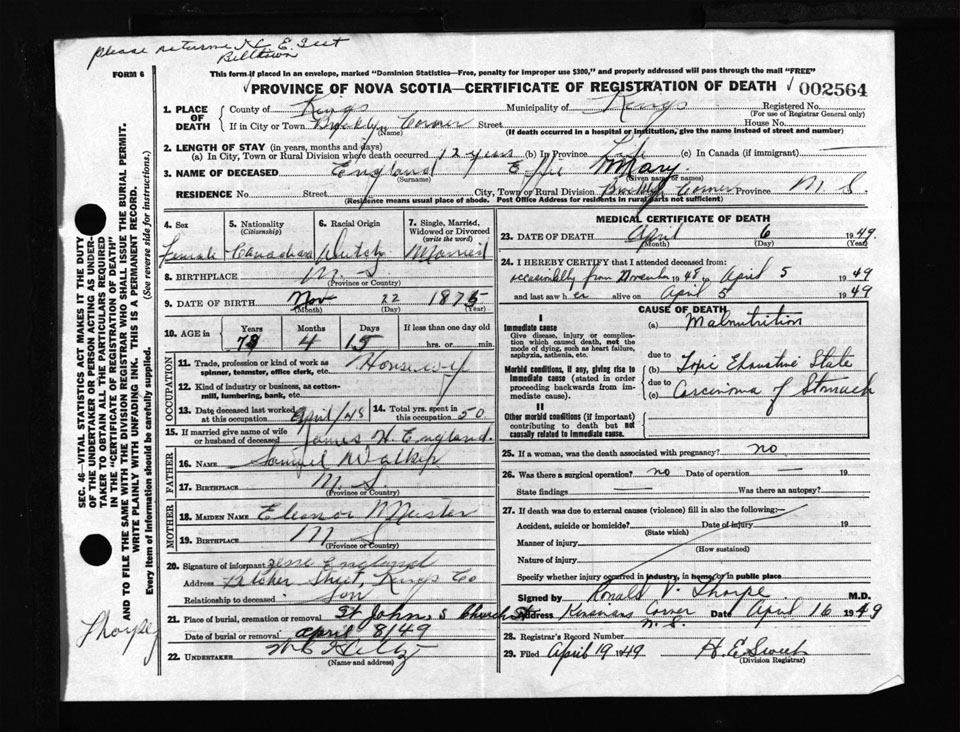 please returne H. E.
Billtown
FORM 6
This form if placed in an envelope, marked "Dominion Statistics—Free, penalty for improper use $300," and properly addressed will pass through the mail "FREE"
PROVINCE OF NOVA SCOTIA—CERTIFICATE OF REGISTRATION OF DEATH 002564
1. PLACE OF DEATH County of Kings Municipality of Kings Registered No.
(For use of Registrar General only)
If in City or Town Corner Street House No.
(Name) (If death occurred in a hospital or institution, give the name instead of street and number)
2. LENGTH OF STAY (in years, months and days)
(a) In City, Town or Rural Division where death occurred 12 years (b) In Province Life (c) In Canada (if immigrant)
3. NAME OF DECEASED England Effie Mary
(Surname) (Given name or names)
RESIDENCE No. Street City, Town or Rural Division Corner Province N. S.
(Residence means usual place of abode. Post Office Address for residents in rural parts not sufficient)
4. Sex 5. Nationality (Citizenship) 6. Racial Origin 7. Single, Married, Widowed or Divorced (write the word)
Female Canadian Dutch Married
8. BIRTHPLACE N. S.
(Province or Country)
9. DATE OF BIRTH Nov 22 1875
(Month) (Day) (Year)
10. AGE in Years Months Days If less than one day
4 15 hrs. or min.
OCCUPATION
11. Trade, profession or kind of work as spinner, teamster, office clerk, etc. Housewife
12. Kind of industry or business, as cotton-mill, lumbering, bank, etc.
13. Date deceased last worked at this occupation April/48 14. Total yrs. spent in this occupation 50
15. If married give name of wife or husband of deceased James H. England.
FATHER
16. NAME Samuel Walker
17. BIRTHPLACE N. S.
(Province or Country)
MOTHER
18. MAIDEN NAME Eleanor
19. BIRTHPLACE N. S.
(Province or Country)
20. Signature of informant England
Address Street, Kings Co
Relationship to deceased Son
21. Place of burial, cremation or removal St. Johns Church
Date of burial or removal April 8/49
22. UNDERTAKER
(Name and address)
MEDICAL CERTIFICATE OF DEATH
23. DATE OF DEATH April 6 1949.
(Month) (Day) (Year)
24. I HEREBY CERTIFY that I attended deceased from:
occasionally from November 1948 to April 5 1949
and last saw her alive on April 5 1949
CAUSE OF DEATH
I
Immediate cause
Give disease, injury or complication which caused death, not the mode of dying, such as heart failure, asphyxia, asthenia, etc.
(a) Malnutrition
Morbid conditions, if any, giving rise to immediate cause (stated in order proceeding backwards from immediate cause).
due to Toxic Exhaustive State
due to
(c) Carcinoma of Stomach
II
Other morbid conditions (if important) contributing to death but not causally related to immediate cause.
25. If a woman, was the death associated with pregnancy? no
26. Was there a surgical operation? no Date of operation — 19
State findings Was there an autopsy?
27. If death was due to external causes (violence) fill in also the following:—
Accident, suicide or homicide? Date of injury 19
(State which)
Manner of injury
(How sustained)
Nature of injury
Specify whether injury occurred in industry, in home, or in public place
Signed by Ronald V. Thorpe M.D.
Address Corner N.S. Date April 16 1949
28. Registrar's Record Number
29. Filed April 19 1949
(Division Registrar)
SEC. 46—VITAL STATISTICS ACT MAKES IT THE DUTY
OF THE UNDERTAKER OR PERSON ACTING AS UNDERTAKER
TO OBTAIN ALL THE PARTICULARS REQUIRED
IN THE "CERTIFICATE OF REGISTRATION OF DEATH"
AND TO FILE THE SAME WITH THE DIVISION REGISTRAR WHO SHALL ISSUE THE BURIAL PERMIT.
WRITE PLAINLY WITH UNFADING INK. THIS IS A PERMANENT RECORD.
Every item of information should be carefully supplied. (See reverse side for instructions.)
Thorpe